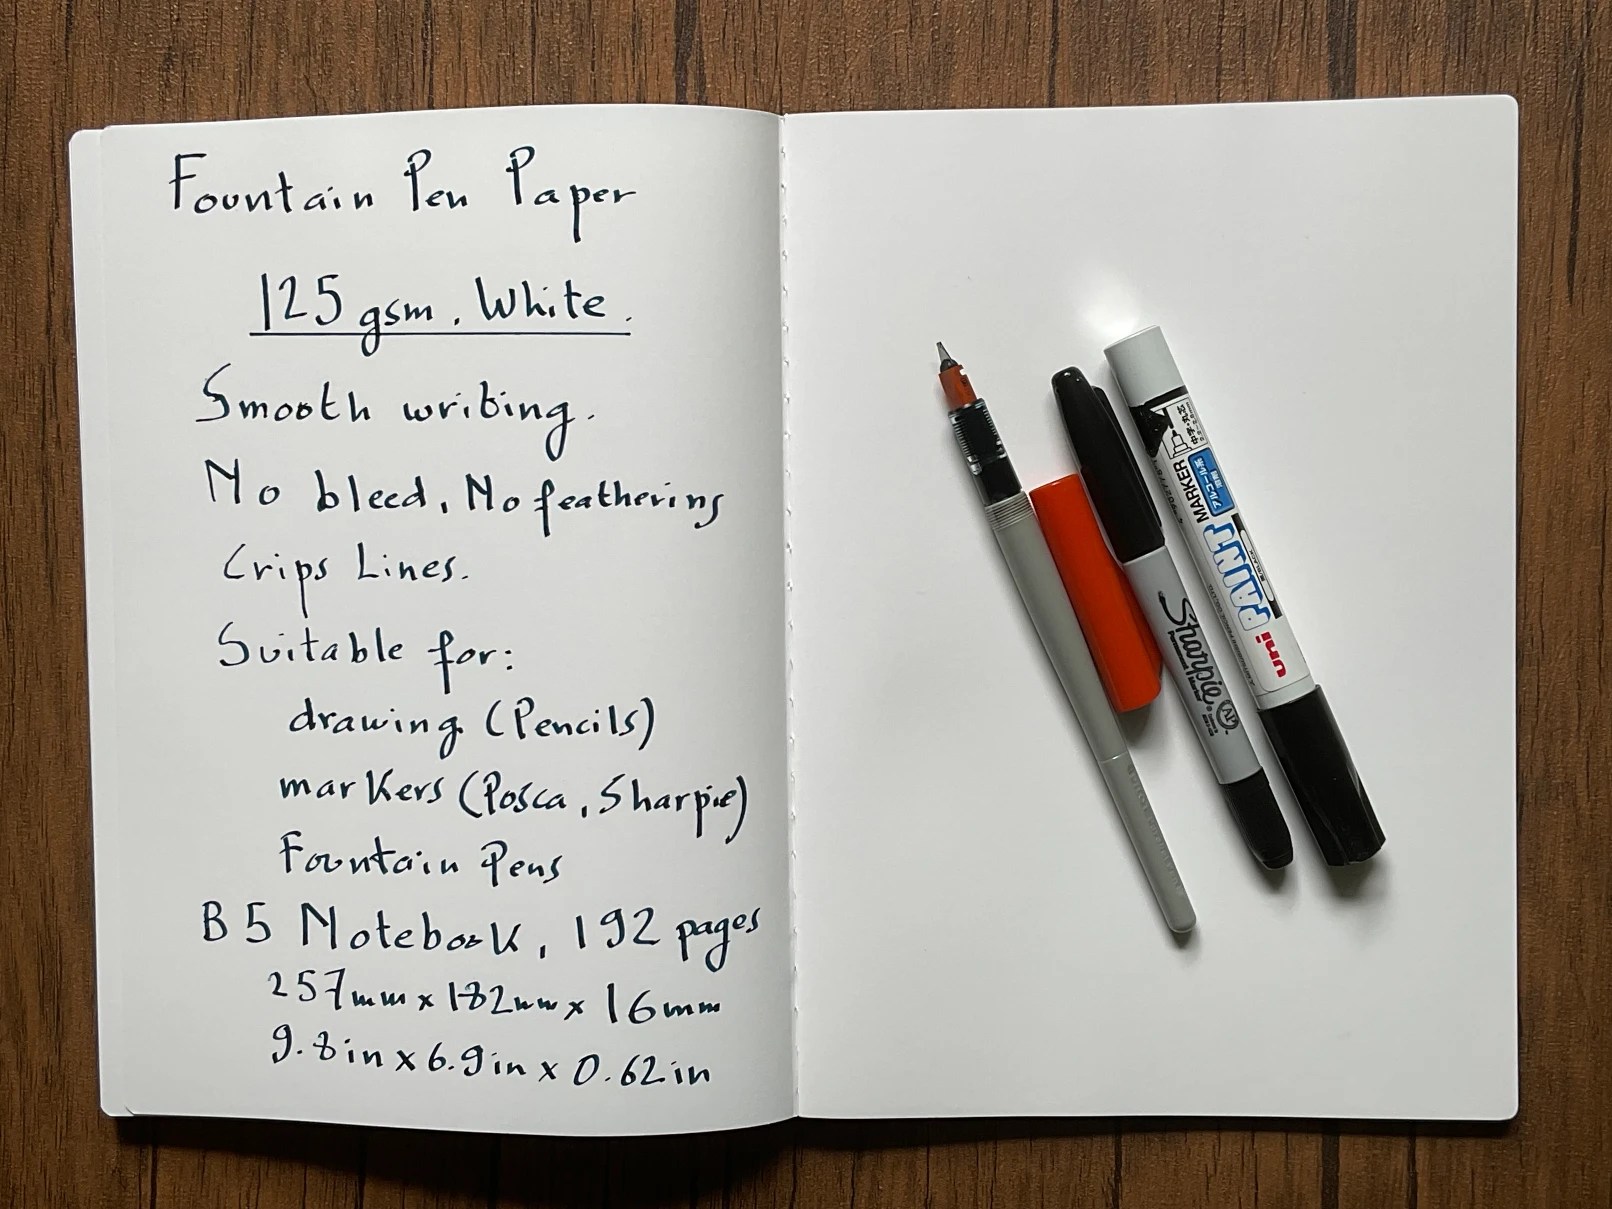 Fountain Pen Paper
125 gsm. White.
Smooth writing.
No bleed, No feathering
Crips Lines.
Suitable for:
drawing (Pencils)
markers (Posca, Sharpie)
Fountain Pens
B5 Notebook, 192 pages
257mm x 182mm x 16mm
9.8in x 6.9in x 0.62in
Sharpie
Permanent Marker
AP
uni PAINT MARKER
アルコール系
中字・丸芯